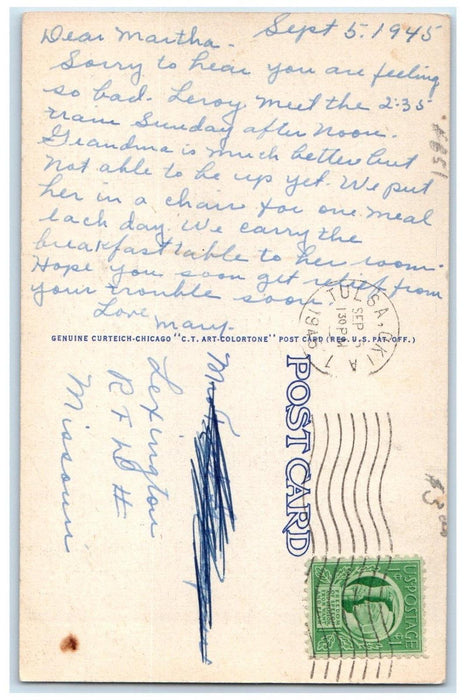 Sept 5. 1945
Dear Martha.
Sorry to hear you are feeling
so bad. Leroy meet the 2:35
train Sunday after noon.
Grandma is much better but
not able to be up yet. We put
her in a chair for one meal
each day. We carry the
breakfast table to her room.
Hope you soon get relief from
your trouble soon.
Love
Mary.
GENUINE CURTEICH-CHICAGO "C.T. ART-COLORTONE" POST CARD (REG. U.S. PAT. OFF.)
TULSA, OKLA
SEP
130 PM
1945
POST CARD
Lexington
Missouri
US POSTAGE
1¢ 1¢
$3.00